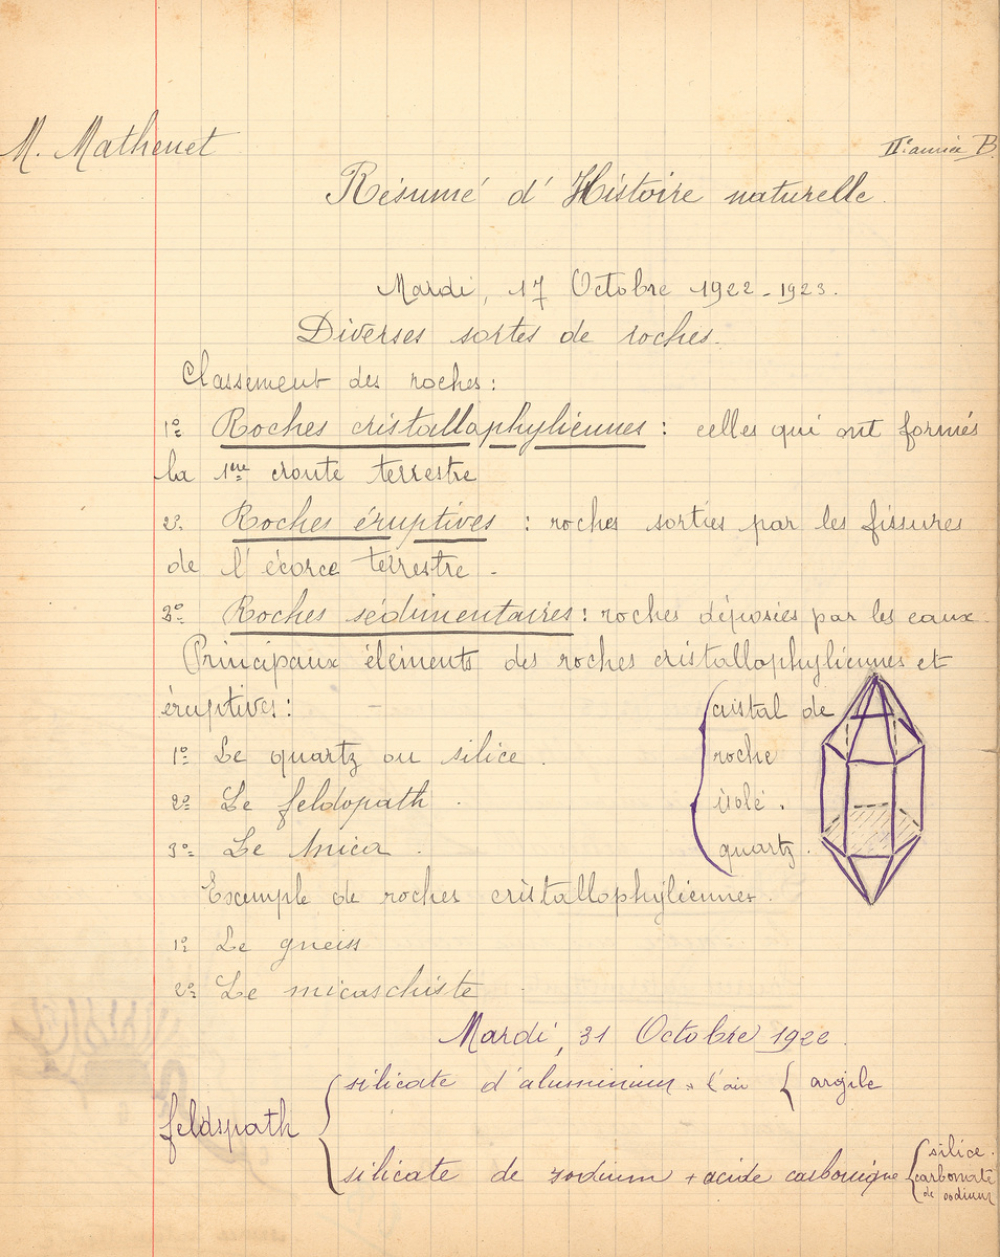 M. Mathenet
IIe année B.
Résumé d'Histoire naturelle.
Mardi, 17 Octobre 1922-1923.
Diverses sortes de roches.
Classement des roches :
1º Roches cristallophyliennes : celles qui ont formés
la 1ère croute terrestre
2º Roches éruptives : roches sorties par les fissures
de l'écorce terrestre.
3º Roches sédimentaires : roches déposées par les eaux.
Principaux éléments des roches cristallophyliennes et
éruptives :
cristal de
roche
isolé.
quartz.
1º Le quartz ou silice.
2º Le feldopath.
3º Le Mica.
Exemple de roches cristallophyliennes.
1º Le gneiss
2º Le micaschiste
Mardi, 31 Octobre 1922.
feldspath
silicate d'aluminium + l'air { argile
silicate de sodium + acide carbonique
silice.
carbonate
de sodium